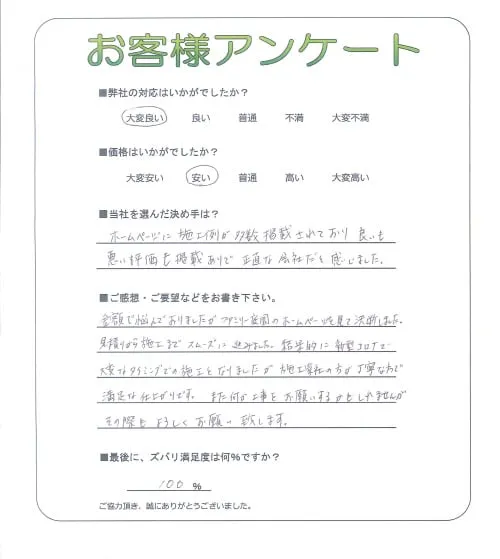 お客様アンケート
■弊社の対応はいかがでしたか？
大変良い 良い 普通 不満 大変不満
■価格はいかがでしたか？
大変安い 安い 普通 高い 大変高い
■当社を選んだ決め手は？
ホームページに施工例が多数掲載されており良いも
悪い評価も掲載ありで正直な会社だと感じました。
■ご感想・ご要望などをお書き下さい。
金額で悩んでおりましたがファミリー庭園のホームページを見て決断しました。
見積りから施工までスムーズに進みました。結果的に新型コロナで
大変なタイミングでの施工となりましたが施工業社の方が丁寧な方で
満足な仕上がりです。また何か工事をお願いするかもしれませんが
その際もよろしくお願い致します。
■最後に、ズバリ満足度は何％ですか？
100 %
ご協力頂き、誠にありがとうございました。